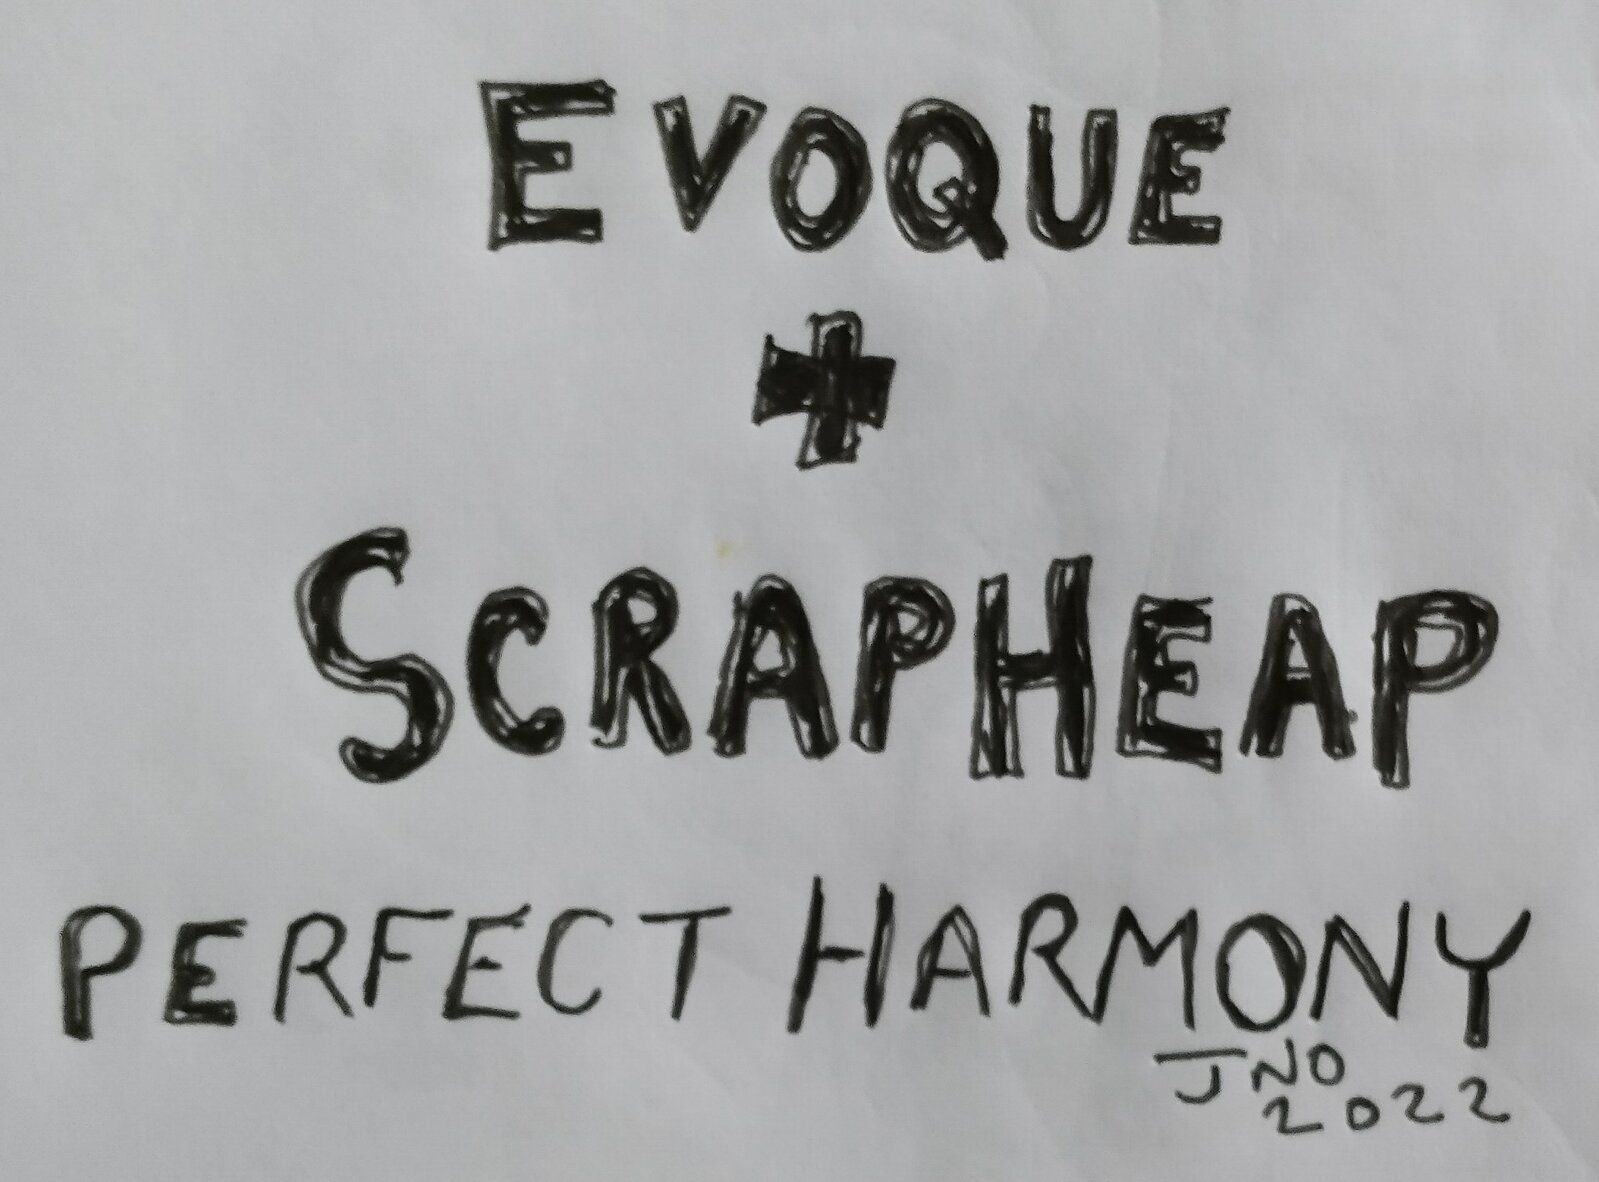 EVOQUE
+
SCRAPHEAP
PERFECT HARMONY
JNO
2022